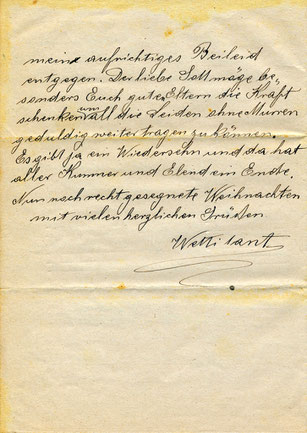 meine aufrichtiges Beileid
entgegen. Der liebe Gott möge be-
sonders Euch guten Eltern die Kraft
schenken um all die Leiden ohne Murren
geduldig weiter tragen zu können.
Es gibt ja ein Wiedersehn und da hat
aller Kummer und Elend ein Ende.
Nun noch recht gesegnete Weihnachten
mit vielen herzlichen Grüßen